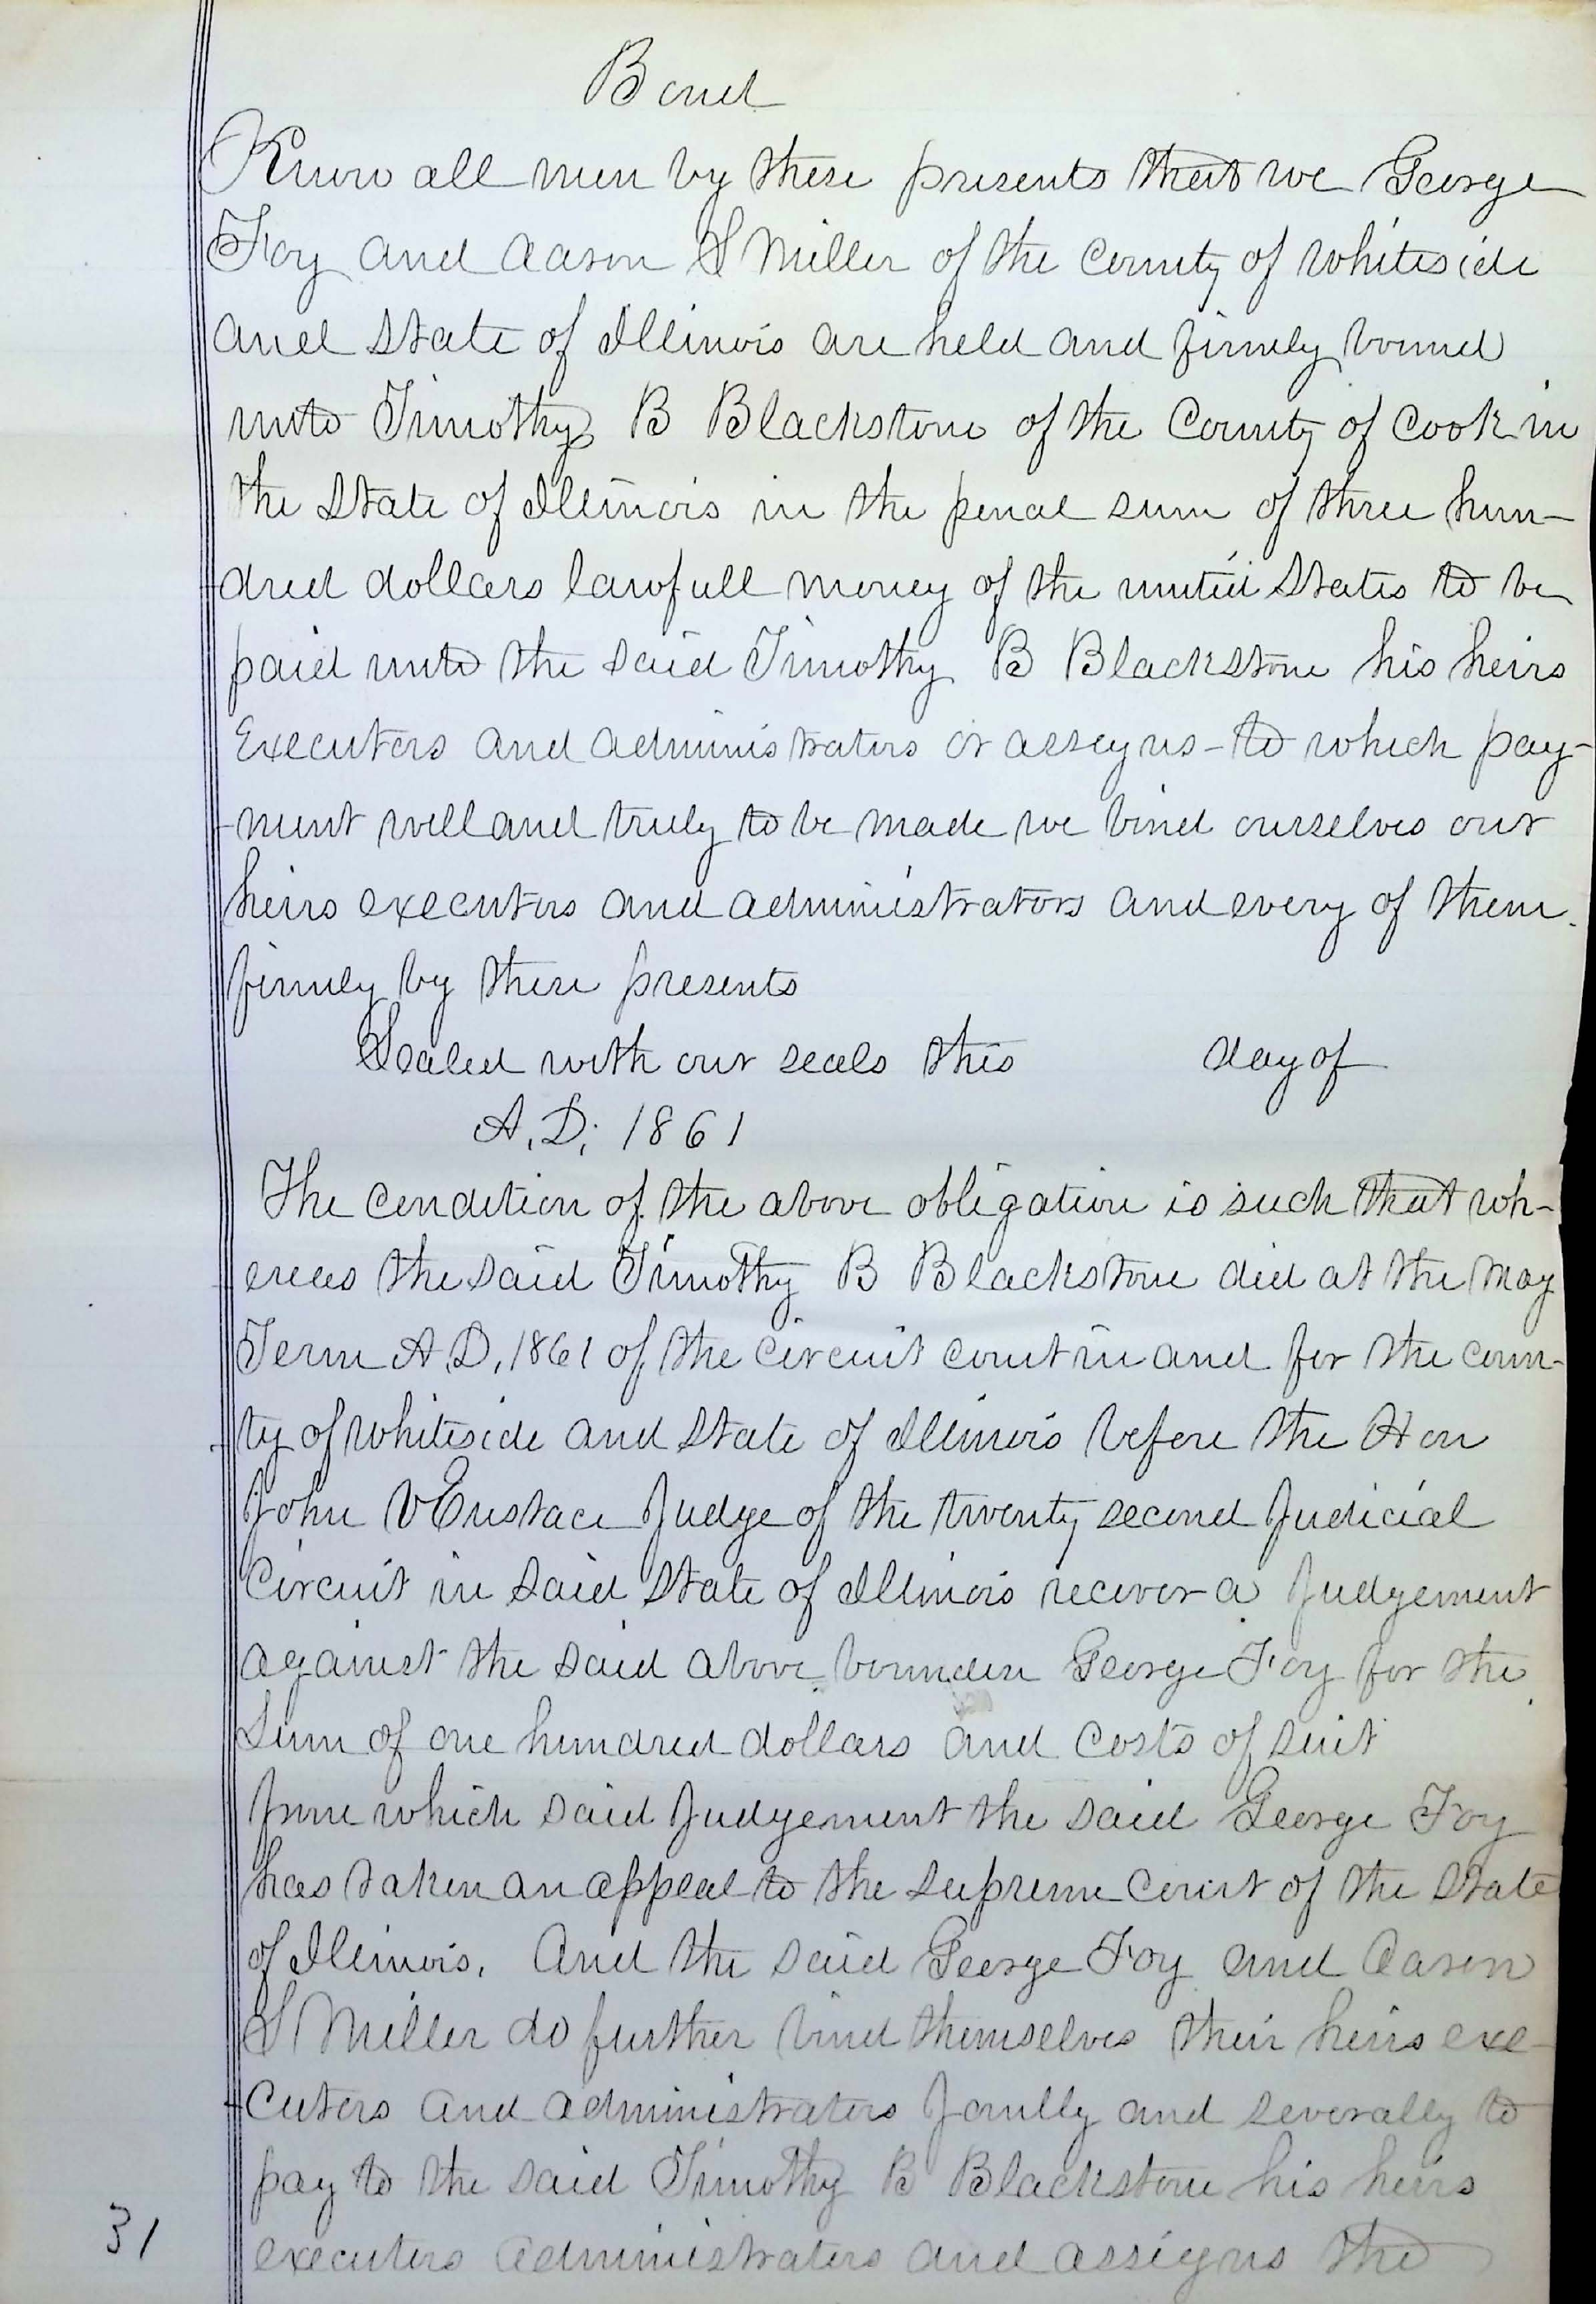 Bond
Know all men by these presents that we George
Foy and Aason S Miller of the County of Whiteside
and State of Illinois are held and firmly bound
unto Timothy B Blackstone of the County of Cook in
the State of Illinois in the penal sum of three hun-
dred dollars lawfull money of the united States to be
paid unto the said Timothy B Blackstone his heirs
Executors and administrators or assigns - to which pay-
-ment well and truly to be made we bind ourselves our
heirs executors and administrators and every of them
firmly by these presents
Sealed with our seals this day of
A.D. 1861
The condition of the above obligation is such that wh-
ereas the said Timothy B Blackstone did at the May
Term A.D. 1861 of the circuit court in and for the coun-
ty of Whiteside and State of Illinois before the Hon
John V Eustace Judge of the twenty second Judicial
Circuit in said State of Illinois recover a Judgement
against the said above bounden George Foy for the
Sum of one hundred dollars and costs of suit
from which said Judgement the said George Foy
has taken an appeal to the supreme court of the State
of Illinois. And the said George Foy and Aason
S Miller do further bind themselves their heirs exe-
-cutors and administrators Jointly and severally to
pay to the said Timothy B Blackstone his heirs
31
executors administrators and assigns the